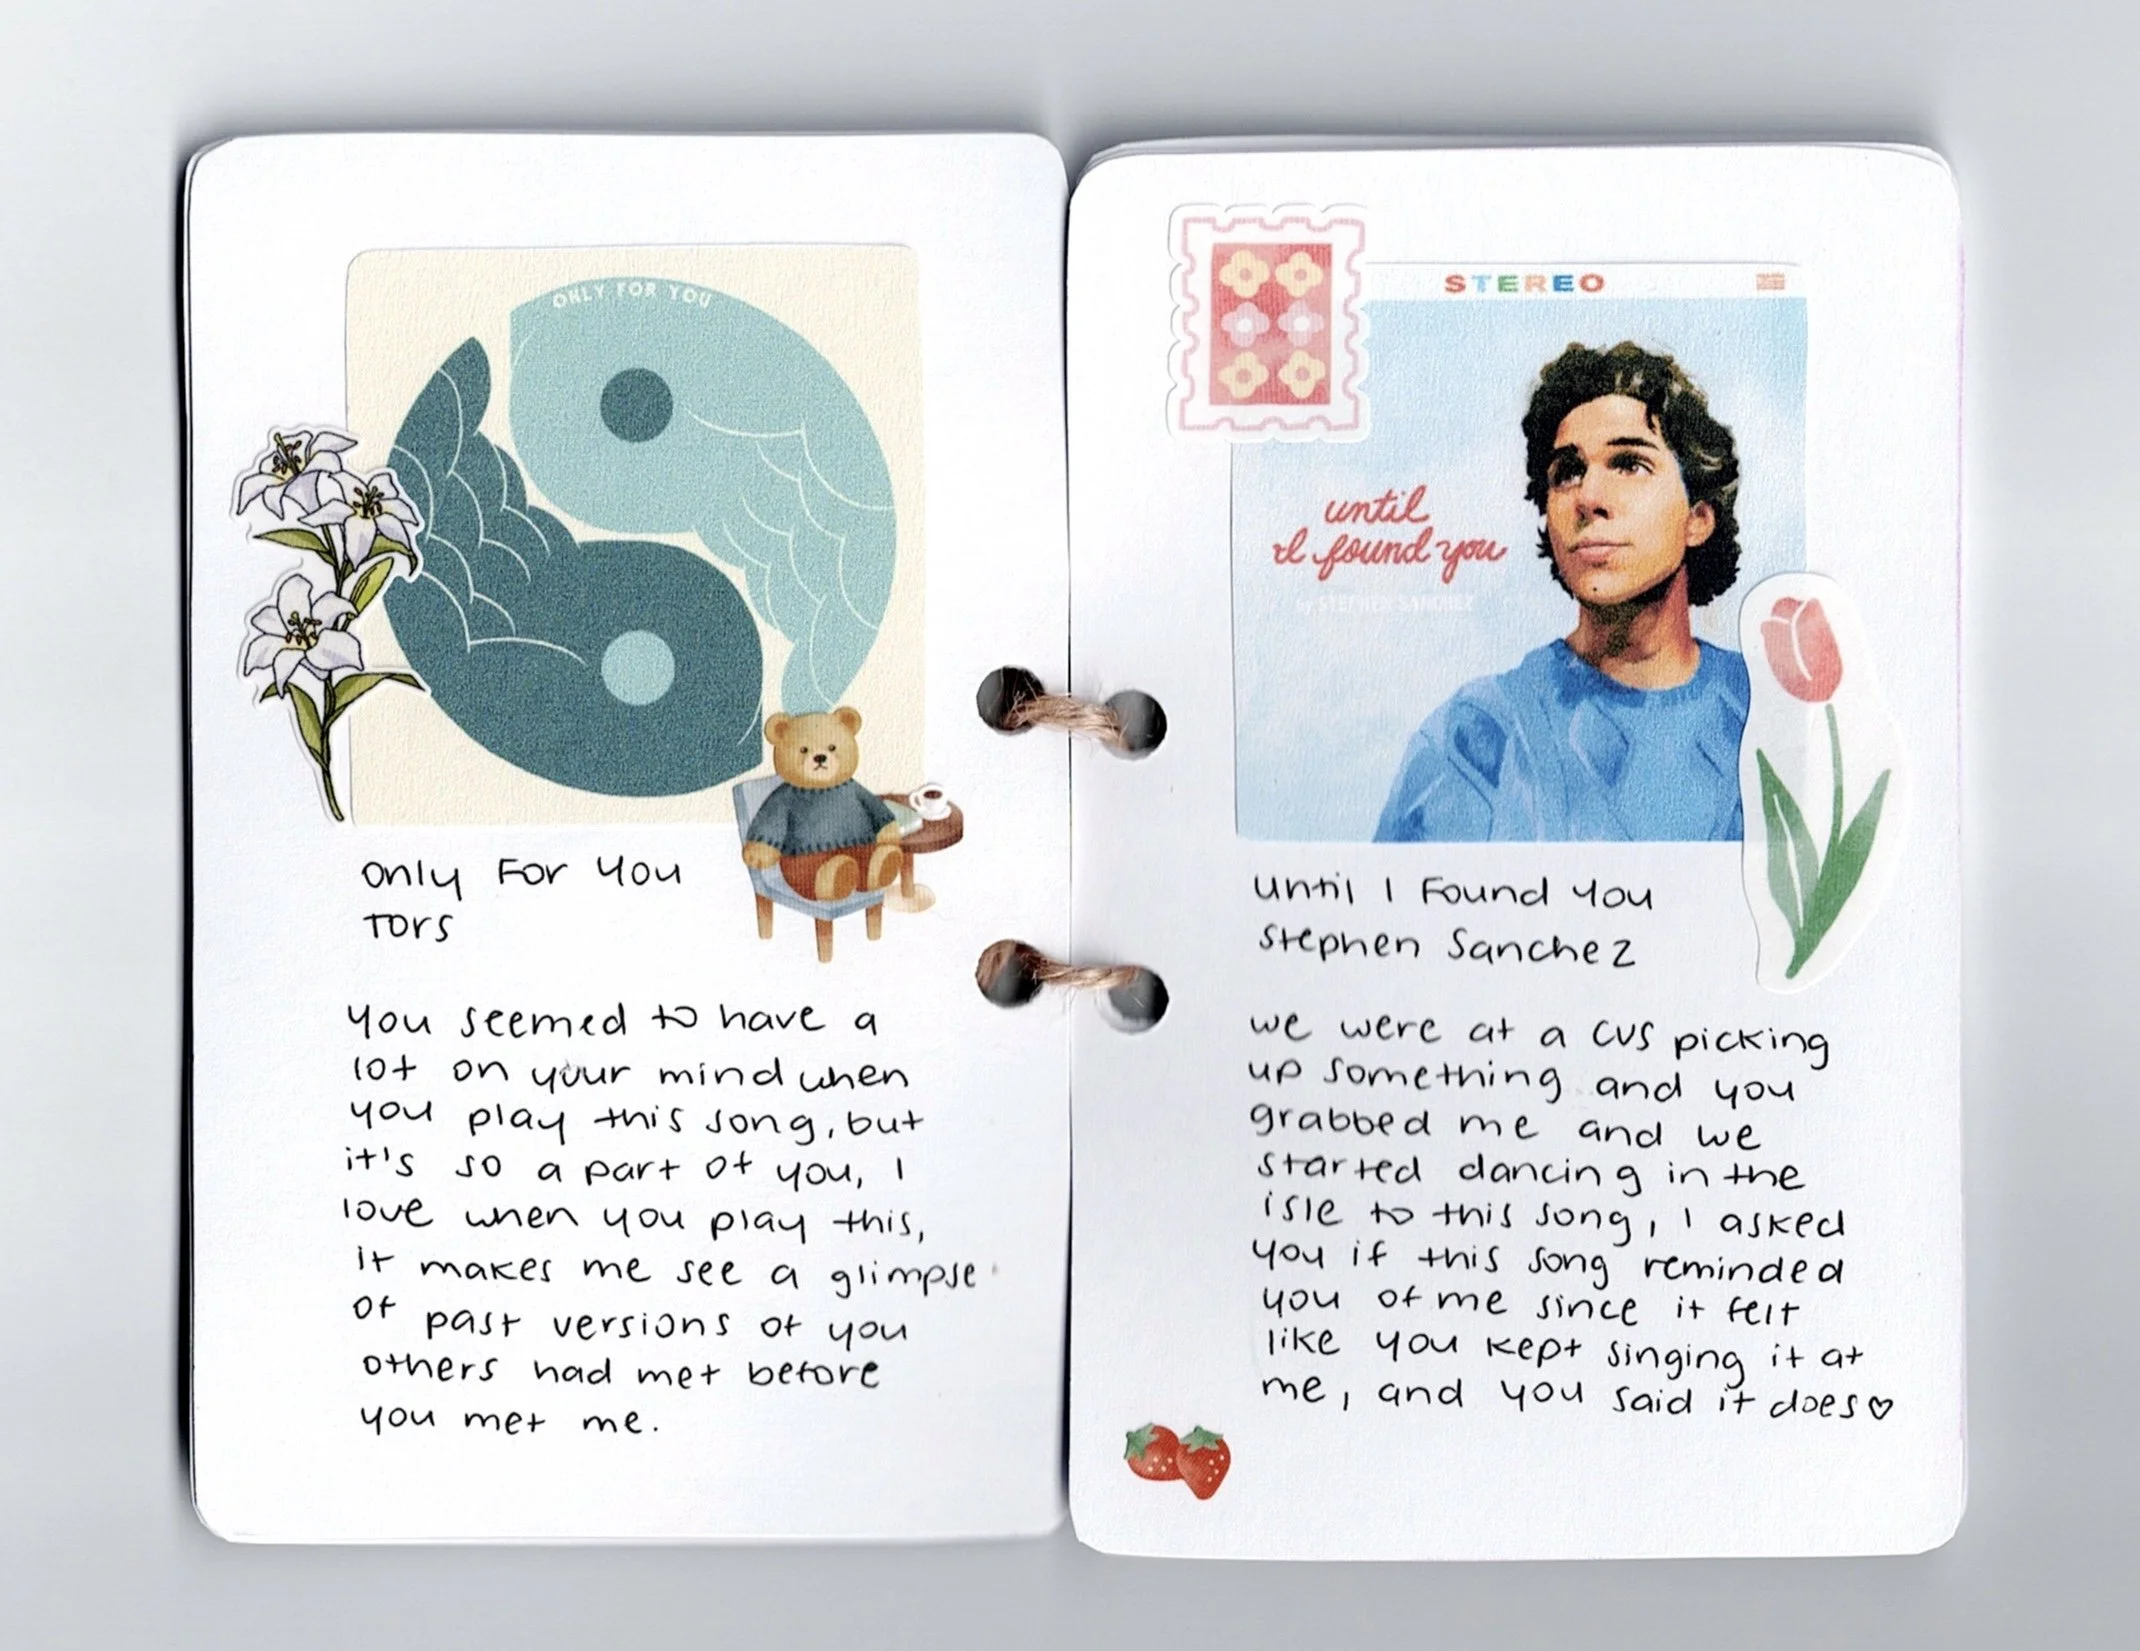 ONLY FOR YOU
Only For You
TORS
you seemed to have a
lot on your mind when
you play this song, but
it's so a part of you, I
love when you play this,
it makes me see a glimpse
of past versions of you
others had met before
you met me.
STEREO
until
I found you
by STEPHEN SANCHEZ
until I Found You
Stephen Sanchez
we were at a CVS picking
up something and you
grabbed me and we
started dancing in the
isle to this song, I asked
you if this song reminded
you of me since it felt
like you kept singing it at
me, and you said it does♡